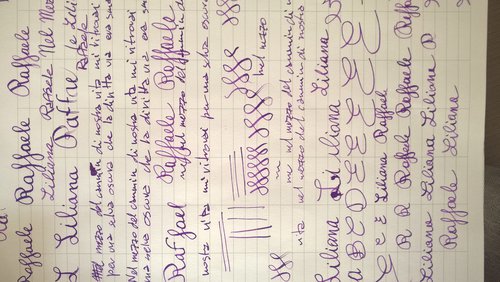 Raffaele Raffaele Raffaele
Liliana Raffaele Nel
L Liliana
Raffaele
Nel mezzo del cammin di nostra vita mi ritrovai
per una selva oscura che la diritta via era
Nel mezzo del cammin di nostra vita mi ritrovai
una selva oscura che la diritta via era
Raffael Raffaele Raffaele
nel mezzo del cammin di
nostra vita mi ritrovai per una selva oscura
nel mezzo
me nel mezzo del cammin di
vita nel mezzo del cammin di nostra
Liliana L Liliana Liliana
a B C D E E E E
E E E Liliana Raffaele
R R Raffaele Raffaele
Liliana Liliana Liliana R
Raffaele Liliana